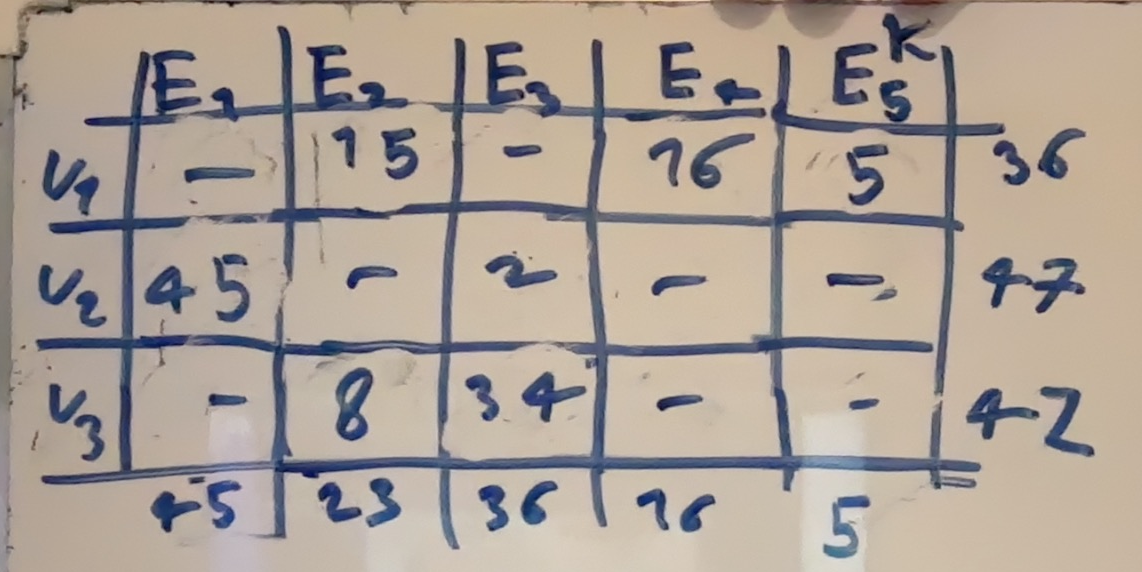 E₁ E₂ E₃ E₄ E₅ᴷ
V₁ - 15 - 16 5 36
V₂ 45 - 2 - - 47
V₃ - 8 34 - - 42
45 23 36 16 5